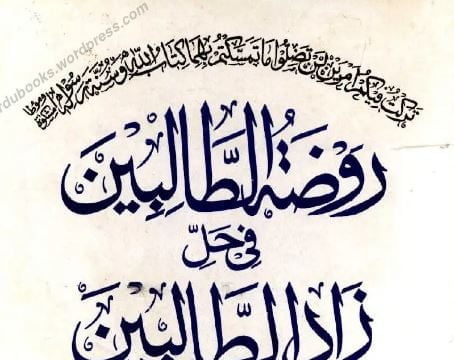 rdubooks.wordpress.com
تركت فيكم أمرين لن تضلوا ما تمسكتم بهما كتاب الله وسنة رسوله
رَوْضَةُ الطَّالِبِيْنَ
فِيْ حَلِّ
زَادُ الطَّالِبِيْنَ